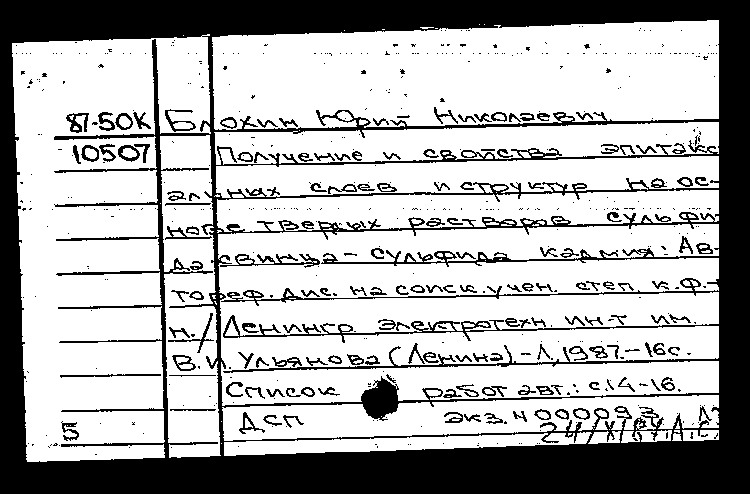 87-50К Блохин Юрий Николаевич
10507 Получение и свойства эпитакс
альных слоев и структур на ос-
нове твердых растворов сульфи-
да свинца - сульфида кадмия: Ав-
тореф. дис. на соиск. учен. степ. к.ф.-
н./Ленингр. электротехн. ин-т им.
В.И. Ульянова (Ленина) - Л, 1987. - 16с.
Список работ авт.: с.14-16.
ДСП экз. N 000093
24/XI